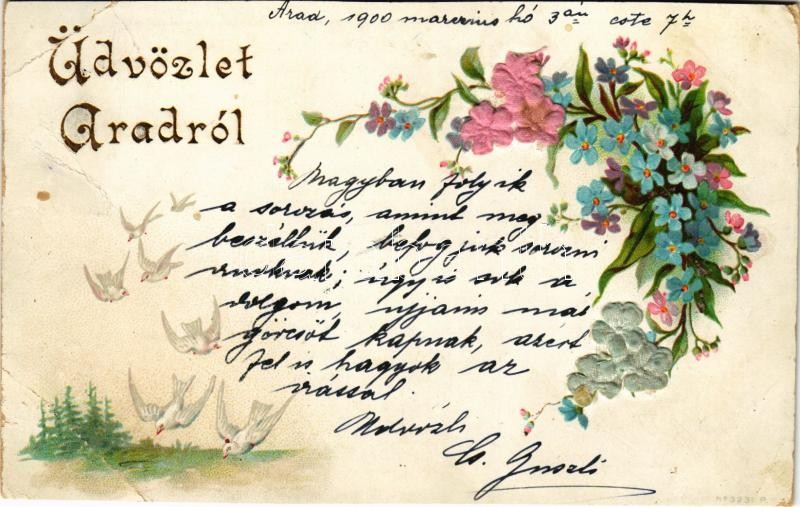 Arad, 1900 marczius hó 3án este 7h
Üdvözlet
Aradról
Nagyban folyik
a sorozás, amint meg
beszéltük, befogjuk sorozni
úgy is sok a
dolgom, ujjaim már
görcsöt kapnak, azért
fel is hagyok az
irással.
Üdvözli
Cs. Guszti
No 3231 P.